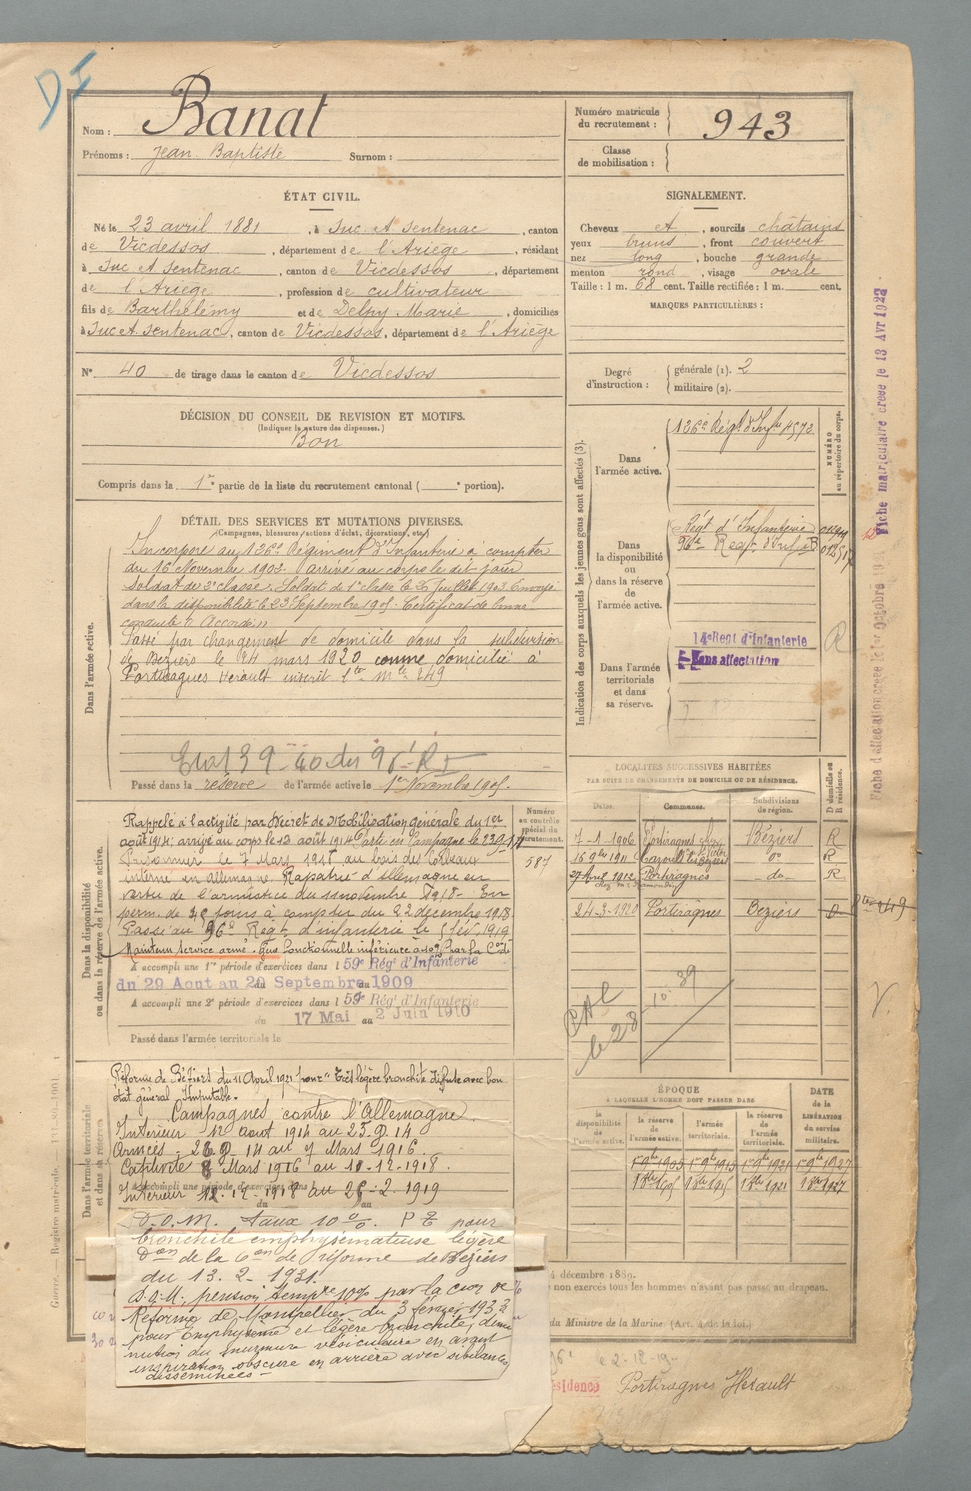 D I
Nom : Banat
Prénoms : Jean Baptiste Surnom :
Numéro matricule du recrutement : 943
Classe de mobilisation :
ÉTAT CIVIL.
Né le 23 avril 1881, à Suc et Sentenac, canton
de Vicdessos, département de l'Ariège, résidant
à Suc et Sentenac, canton de Vicdessos, département
de l'Ariège, profession de cultivateur
fils de Barthélémy et de Delpy Marie, domiciliés
à Suc et Sentenac, canton de Vicdessos, département de l'Ariège
N° 40 de tirage dans le canton de Vicdessos
SIGNALEMENT.
Cheveux et, sourcils châtains
yeux bruns, front couvert
nez long, bouche grande
menton rond, visage ovale
Taille : 1 m. 68 cent. Taille rectifiée : 1 m. cent.
MARQUES PARTICULIÈRES :
Degré d'instruction : générale (1). 2
militaire (2).
DÉCISION DU CONSEIL DE REVISION ET MOTIFS.
(Indiquer la nature des dispenses.)
Bon
Compris dans la 1re partie de la liste du recrutement cantonal ( e portion).
DÉTAIL DES SERVICES ET MUTATIONS DIVERSES.
(Campagnes, blessures, actions d'éclat, décorations, etc.)
Dans l'armée active.
Incorporé au 126e Régiment d'Infanterie à compter
du 16 Novembre 1902. arrivé au corps le dit jour
Soldat de 2e classe. Soldat de 1e classe le Juillet 1903. Envoyé
dans la disponibilité le 23 Septembre 1905. Certificat de bonne
conduite " Accordé "
Passé par changement de domicile dans la subdivision
de Béziers le 24 mars 1920 comme domicilié à
Portiragues Hérault inscrit mle 249
Etat 39-40 du 96e R I
Passé dans la réserve de l'armée active le 1er Novembre 1905.
Indication des corps auxquels les jeunes gens sont affectés (3).
NUMÉRO au répertoire du corps.
Dans l'armée active.
126e Régt d'Infie 4572
Dans la disponibilité ou dans la réserve de l'armée active.
Régt d'Infanterie
96e Regt d'Inf B
Dans l'armée territoriale et dans sa réserve.
14e Regt d'Infanterie
Sans affectation
R
Fiche matriculaire créée le 13 Avr 1922
Fiche d'affectation créée le 1er Octobre
Dans la disponibilité ou dans la réserve de l'armée active.
Numéro au contrôle spécial du recrutement.
587
Rappelé à l'activité par Décret de Mobilisation générale du 1er
août 1914; arrivé au corps le 13 août 1914. Parti en Campagne le 23.9.14
Prisonnier le 7 Mars 1915 au bois des Corbeaux
interné en allemagne. Rapatrié d'allemagne en
vertu de l'armistice du 11 novembre 1918. En
perm. de 30 jours à compter du 22 décembre 1918
Passé au 96e Régt d'infanterie le 5 fév. 1919
Maintenu service armé. Gêne fonctionnelle inférieure à 10% par la Con de
A accompli une 1re période d'exercices dans l 59e Régt d'Infanterie
du 29 Aout au 20 Septembre 1909
A accompli une 2e période d'exercices dans l 59e Régt d'Infanterie
du 17 Mai au 2 Juin 1910
Passé dans l'armée territoriale le
LOCALITÉS SUCCESSIVES HABITÉES
PAR SUITE DE CHANGEMENTS DE DOMICILE OU DE RÉSIDENCE.
Dates. Communes. Subdivisions de région. D domicile ou R résidence.
7-1-1906 Portiragnes Béziers R
16 9bre 1911 do R
27 Avril 1912 Portiragnes do R
24-3-1920 Portiragnes Béziers D
P A C
le 28.10.39
V.
Dans l'armée territoriale et dans sa réserve
Réforme de Béziers du 11 Avril 1921 pour " Très légère bronchite diffuse avec bon
état général Imputable.
Campagnes contre l'Allemagne
Intérieur 12 aout 1914 au 25.9.14
Armées 26 9 14 au 7 Mars 1916.
Captivité 8 Mars 1916 au 11-12-1918.
Intérieur 12-12-1918 au 28-2-1919
A accompli une période d'exercices dans
ÉPOQUE
À LAQUELLE L'HOMME DOIT PASSER DANS
la disponibilité de l'armée active. la réserve de l'armée active. l'armée territoriale. la réserve de l'armée territoriale. DATE de la LIBÉRATION du service militaire.
1er 9bre 1905 1er 9bre 1915 1er 9bre 1921 1er 9bre 1927
D.O.M. taux 10% P T pour
bronchite emphysémateuse légère
Don de la Con de réforme de Béziers
du 13.2-1931.
D.O.M. pension tempre 10% par la Con de
Réforme de Montpellier du 3 fevrier 1933
pour Emphysème et légère bronchite, dimi
nution du murmure vésiculaire en avant
inspiration obscure en arrière avec sibilances
disséminées
4 décembre 1889.
non exercés tous les hommes n'ayant pas passé au drapeau.
du Ministre de la Marine. (Art. 4 de la loi.)
le 2-12-19
ésidence Portiragnes Hérault
Guerre. Registre matricule.